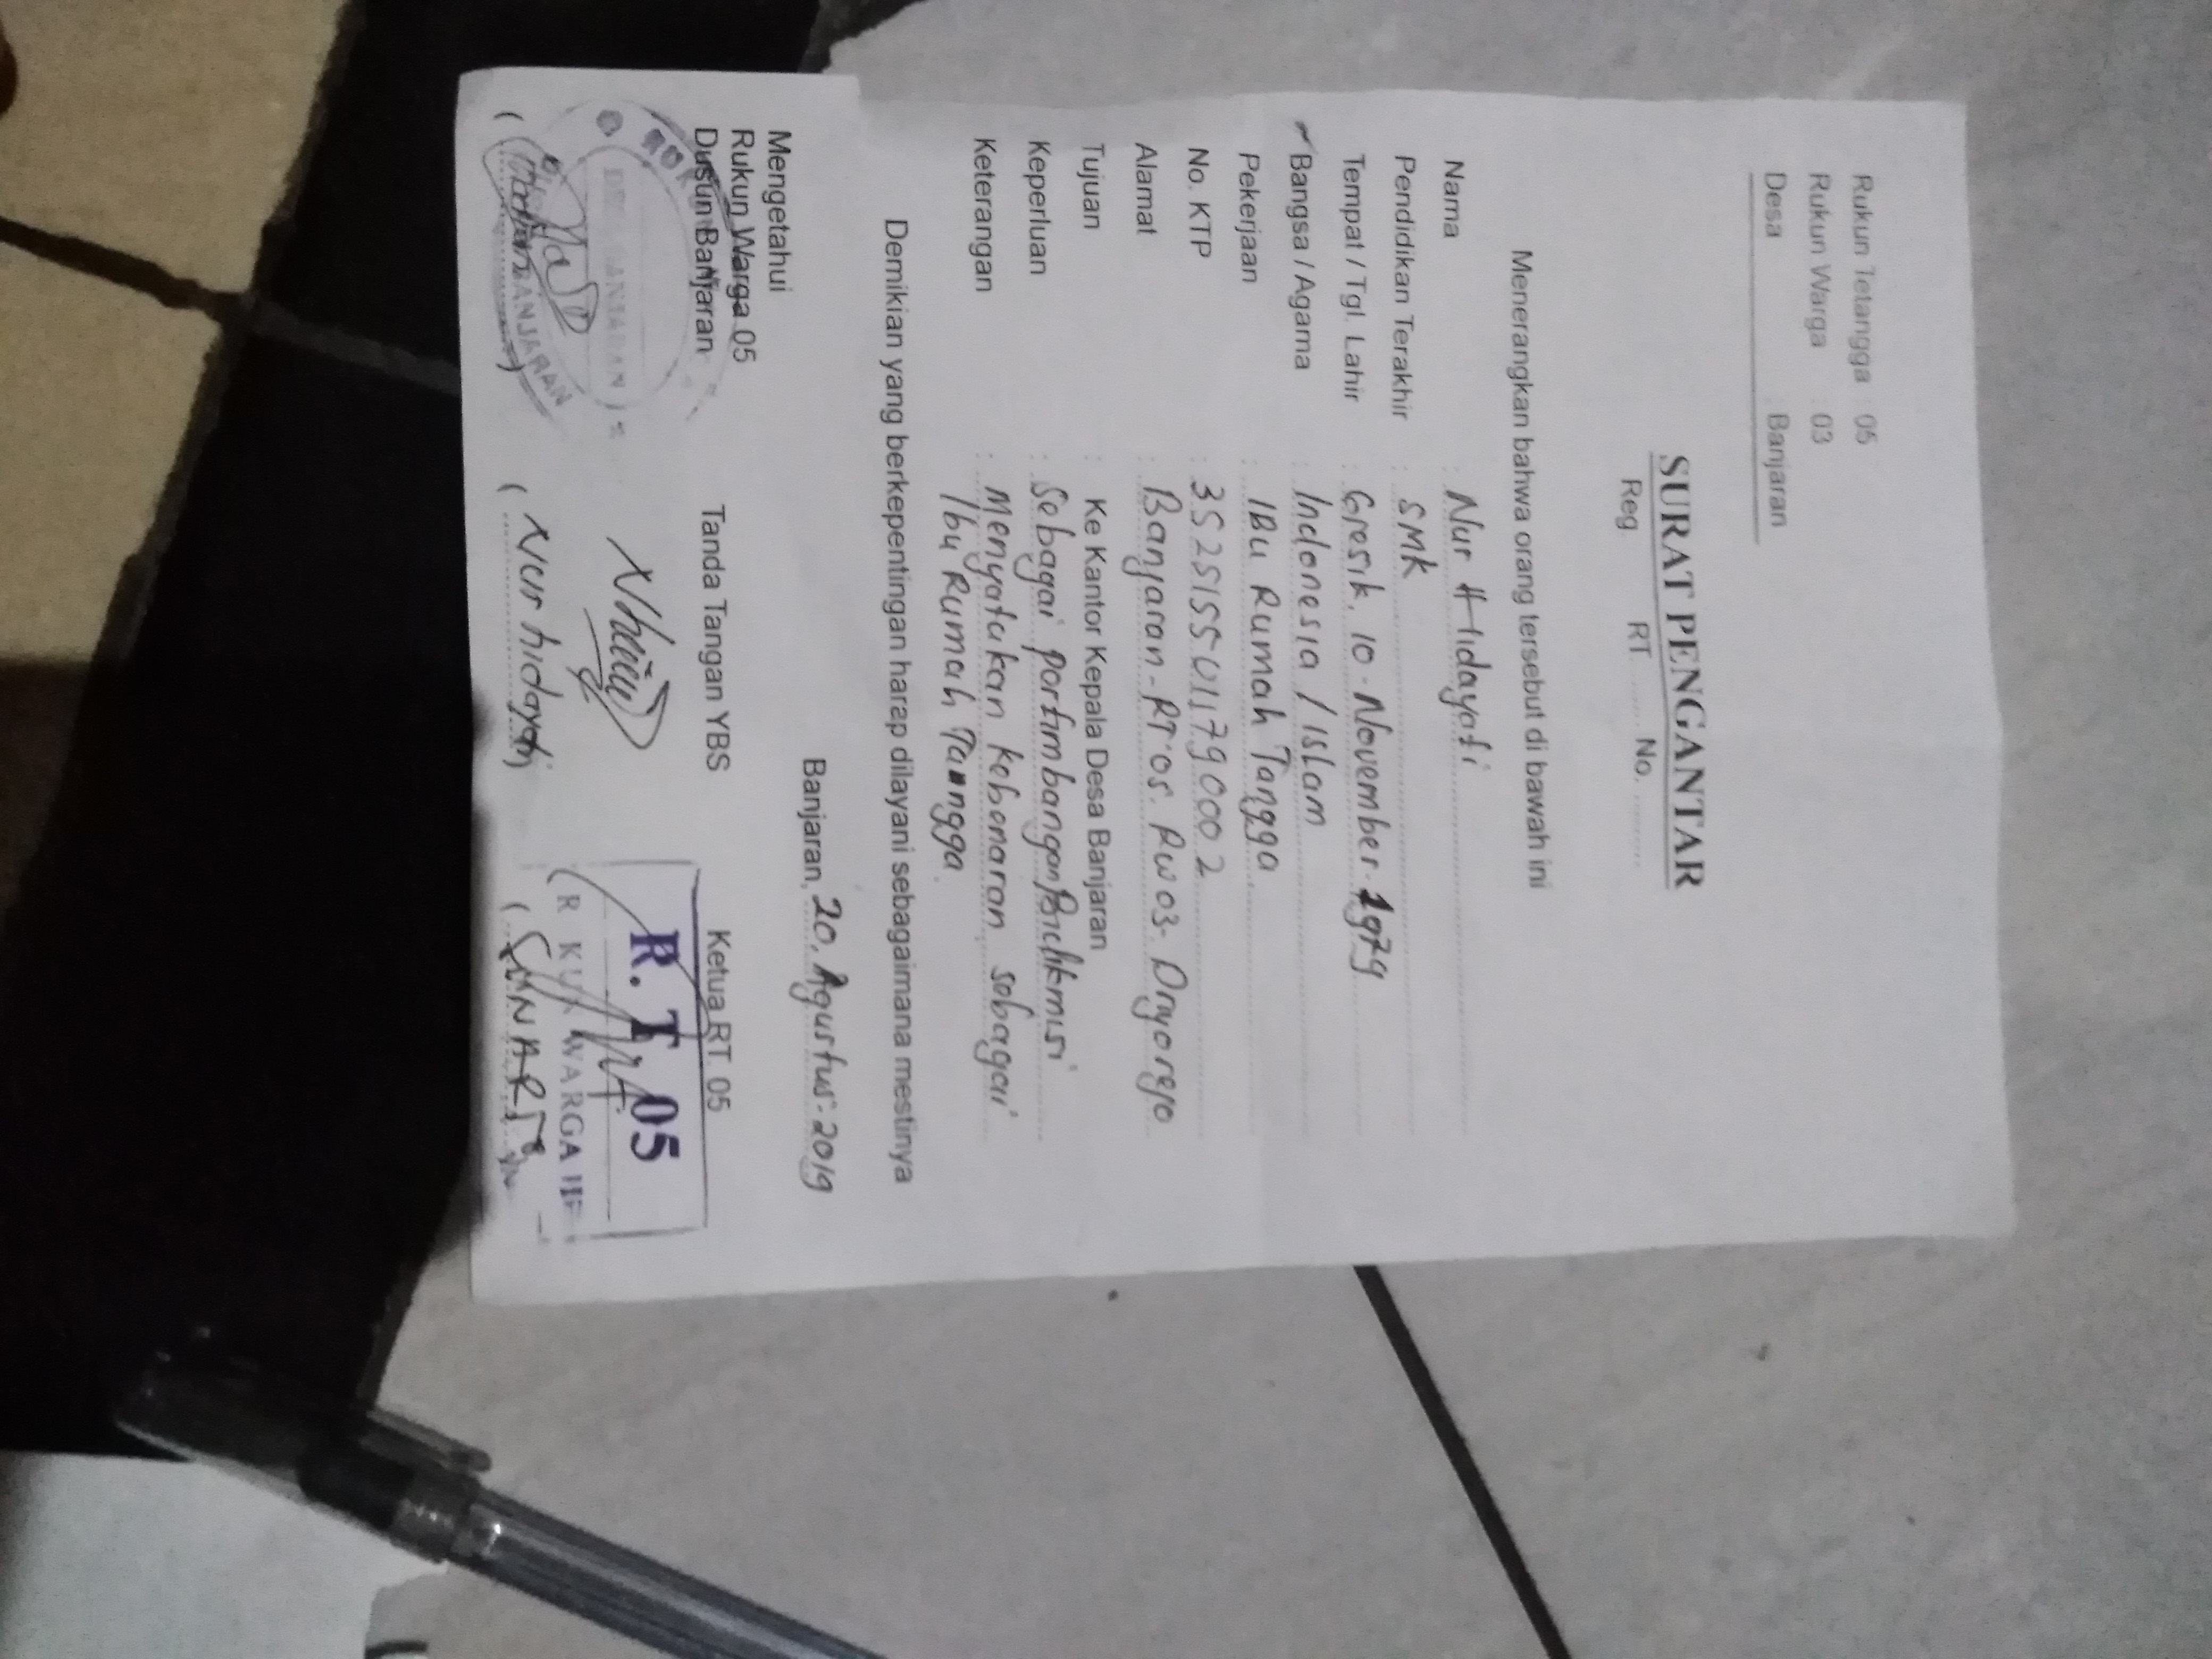 Rukun Tetangga : 05
Rukun Warga : 03
Desa : Banjaran
SURAT PENGANTAR
Reg RT ........ No. ..........
Menerangkan bahwa orang tersebut di bawah ini
Nama : Nur Hidayati
Pendidikan Terakhir : SMK
Tempat / Tgl. Lahir : Gresik, 10 - November - 1979
Bangsa / Agama : Indonesia / Islam
Pekerjaan : IBu Rumah Tangga
No. KTP : 3525155011790002
Alamat : Banjaran - RT 05. RW 03 - Driyorejo
Tujuan : Ke Kantor Kepala Desa Banjaran
Keperluan : Sebagai pertimbangan Bidikmisi
Keterangan : Menyatakan kebenaran sebagai
Ibu Rumah Tangga.
Demikian yang berkepentingan harap dilayani sebagaimana mestinya
Banjaran, 20. Agustus - 2019
Mengetahui
Rukun Warga 05
Dusun Banjaran
Tanda Tangan YBS
Ketua RT 05
R. T. 05
WARGA III
BANJARAN
( Nur hidayati )
( SUNARTO